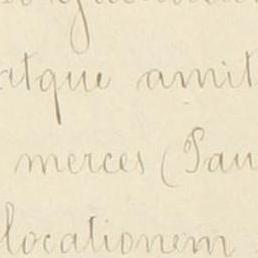 atque amit
merces (Pau
locationem